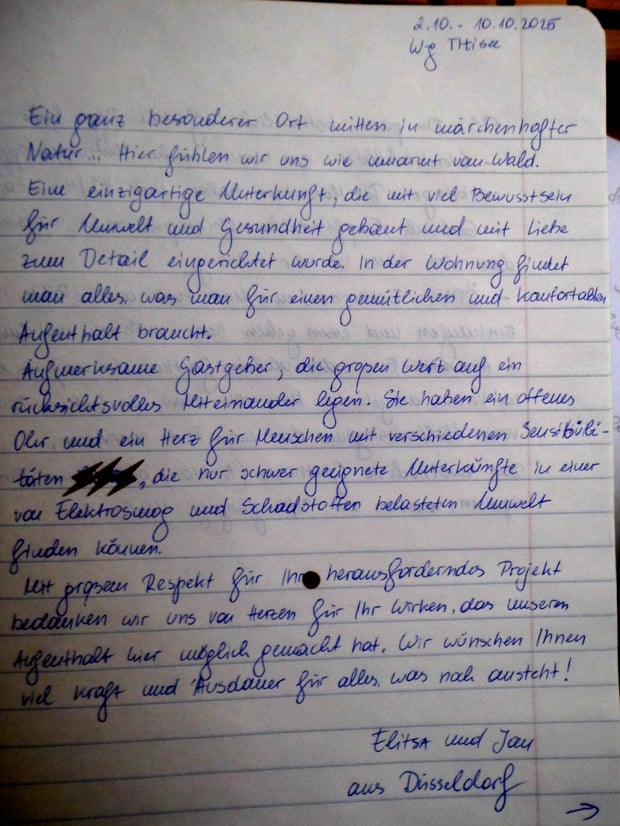 2.10. - 10.10.2025
Wg Titisee
Ein ganz besonderer Ort mitten in märchenhafter
Natur... Hier fühlen wir uns wie umarmt vom Wald.
Eine einzigartige Unterkunft, die mit viel Bewusstsein
für Umwelt und Gesundheit gebaut und mit Liebe
zum Detail eingerichtet wurde. In der Wohnung findet
man alles, was man für einen gemütlichen und komfortablen
Aufenthalt braucht.
Aufmerksame Gastgeber, die großen Wert auf ein
rücksichtsvolles Miteinander legen. Sie haben ein offenes
Ohr und ein Herz für Menschen mit verschiedenen Sensibili-
täten, die nur schwer geeignete Unterkünfte in einer
von Elektrosmog und Schadstoffen belasteten Umwelt
finden können.
Mit großem Respekt für Ihr herausforderndes Projekt
bedanken wir uns von Herzen für Ihr Wirken, das unseren
Aufenthalt hier möglich gemacht hat. Wir wünschen Ihnen
viel Kraft und Ausdauer für alles, was noch ansteht!
Elitsa und Jan
aus Düsseldorf
→